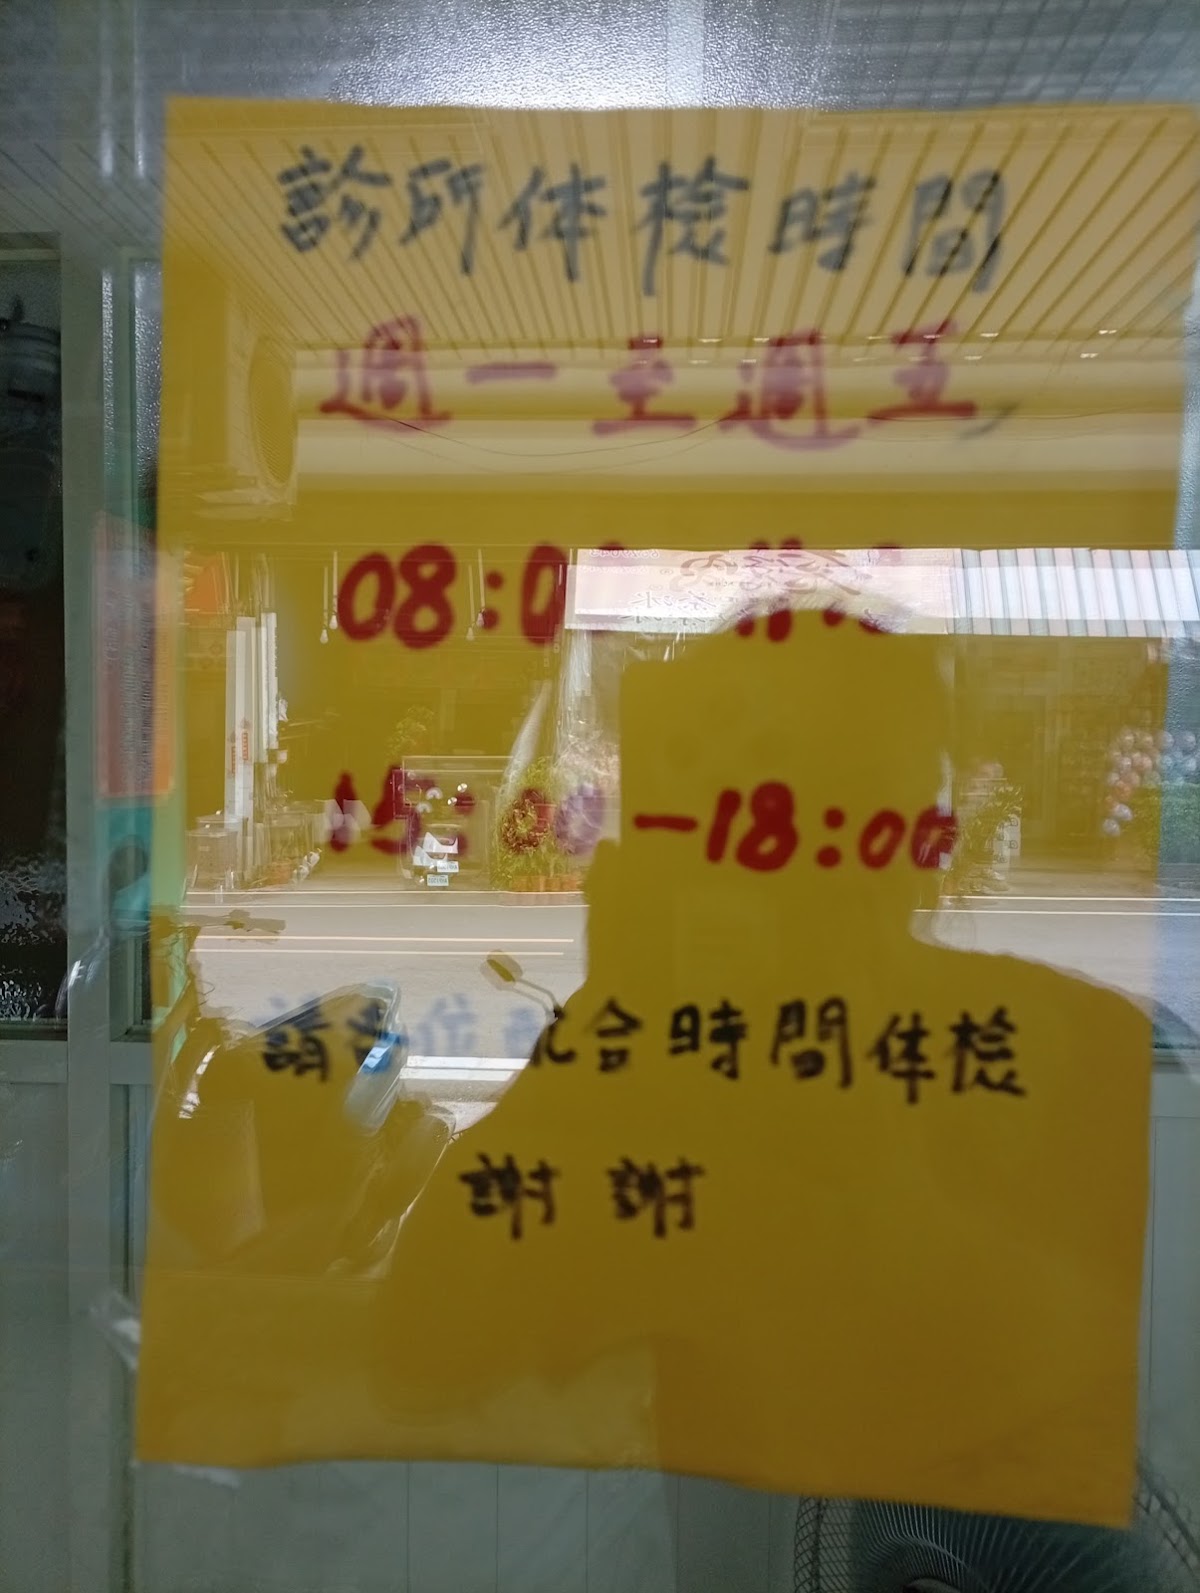 診所体檢時間
週一至週五,
08:0
15:00-18:00
請各位配合時間体檢
謝謝